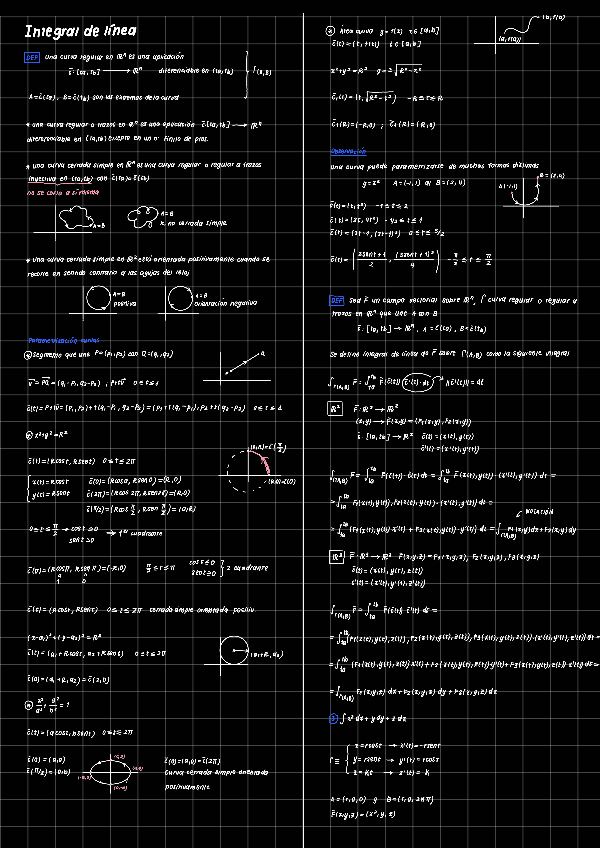 Integral de línea
DEF una curva regular en ℝⁿ es una aplicación
c̄: [ta, tb] → ℝⁿ diferenciable en (ta, tb) Γ(A,B)
A = c̄(ta), B = c̄(tb) son los extremos de la curva
* una curva regular a trozos en ℝⁿ es una aplicación c̄: [ta, tb] → ℝⁿ
diferenciable en (ta, tb) excepto en un nº finito de ptos.
* una curva cerrada simple en ℝⁿ es una curva regular o regular a trozos
inyectiva en (ta, tb) con c̄(ta) = c̄(tb)
no se corta a sí misma
A=B
A=B
no cerrada simple
* una curva cerrada simple en ℝ² está orientada positivamente cuando se
recorre en sentido contrario a las agujas del reloj
A=B
positiva
A=B
orientación negativa
Parametrización curvas
Segmento que une P=(p₁,p₂) con Q=(q₁,q₂)
v̄ = PQ = (q₁-p₁, q₂-p₂) , P+tv̄ 0≤t≤1
c̄(t) = P+tv̄ = (p₁,p₂)+t(q₁-p₁, q₂-p₂) = (p₁+t(q₁-p₁), p₂+t(q₂-p₂)) 0≤t≤1
x²+y²=R²
c̄(t) = (Rcost, Rsent) 0≤t≤2π
x(t) = Rcost c̄(0) = (Rcos0, Rsen0) = (R,0)
y(t) = Rsent c̄(2π) = (Rcos2π, Rsen2π) = (R,0)
c̄(π/2) = (Rcos π/2, Rsen π/2) = (0,R)
0≤t≤π/2 → cost≥0
sent≥0 → 1er cuadrante
c̄(π) = (Rcosπ, Rsenπ) = (-R,0) π/2≤t≤π cost≤0
sent≥0 2 cuadrante
c̄(t) = (Rcost, Rsent) 0≤t≤2π cerrada simple orientada positiv.
(x-a₁)²+(y-a₂)²=R²
c̄(t) = (a₁+Rcost, a₂+Rsent) 0≤t≤2π
c̄(0) = (a₁+R, a₂) = c̄(2π)
x²/a² + y²/b² = 1
c̄(t) = (acost, bsent) 0≤t≤2π
c̄(0) = (a,0)
c̄(π/2) = (0,b)
c̄(0) = (a,0) = c̄(2π)
curva cerrada simple orientada
positivamente
Arco curva y=f(x) x∈[a,b]
c̄(t) = (t, f(t)) t∈[a,b]
(a, f(a))
(b, f(b))
x²+y²=R² y=±√(R²-x²)
c̄₁(t) = (t, √(R²-t²)) -R≤t≤R
c̄₁(-R) = (-R,0) ; c̄₁(R) = (R,0)
Observación
una curva puede parametrizarse de muchas formas distintas
y=x² A=(-1,1) a B=(2,4)
c̄(t) = (t, t²) -1≤t≤2
c̄(t) = (2t, 4t²) -1/2≤t≤1
DEF Sea F̄ un campo vectorial sobre ℝⁿ, Γ curva regular o regular a
trozos en ℝⁿ que une A con B
c̄: [ta, tb] → ℝⁿ, A=c̄(ta), B=c̄(tb)
Se define integral de línea de F̄ sobre Γ(A,B) como la siguiente integral
ℝ² F̄: ℝ² → ℝ²
(x,y) → F̄(x,y) = (F₁(x,y), F₂(x,y))
c̄: [ta, tb] → ℝ² c̄(t) = (x(t), y(t))
c̄'(t) = (x'(t), y'(t))
∫Γ(A,B) = ∫ta^tb F̄(c̄(t))·c̄'(t) dt = ∫ta^tb F̄(x(t),y(t))·(x'(t),y'(t)) dt =
= ∫ta^tb (F₁(x(t),y(t)), F₂(x(t),y(t)))·(x'(t),y'(t)) dt =
NOTACIÓN
= ∫ta^tb (F₁(x(t),y(t)) x'(t) + F₂(x(t),y(t))·y'(t)) dt = ∫Γ(A,B) F₁(x,y)dx + F₂(x,y)dy
ℝ³ F̄: ℝ³ → ℝ³ F̄(x,y,z) = F₁(x,y,z), F₂(x,y,z), F₃(x,y,z)
c̄(t) = (x(t), y(t), z(t))
c̄'(t) = (x'(t), y'(t), z'(t))
∫Γ(A,B) F̄ = ∫ta^tb F̄(c̄(t))·c̄'(t) dt =
= ∫Γ(A,B) F₁(x,y,z) dx + F₂(x,y,z) dy + F₃(x,y,z) dz
∫ x² dx + y dy + z dz
Γ ≡ x = rcost → x'(t) = -rsent
y = rsent → y'(t) = rcost
z = Kt → z'(t) = K
A = (r,0,0) y B = (r,0,2Kπ)
F̄(x,y,z) = (x², y, z)